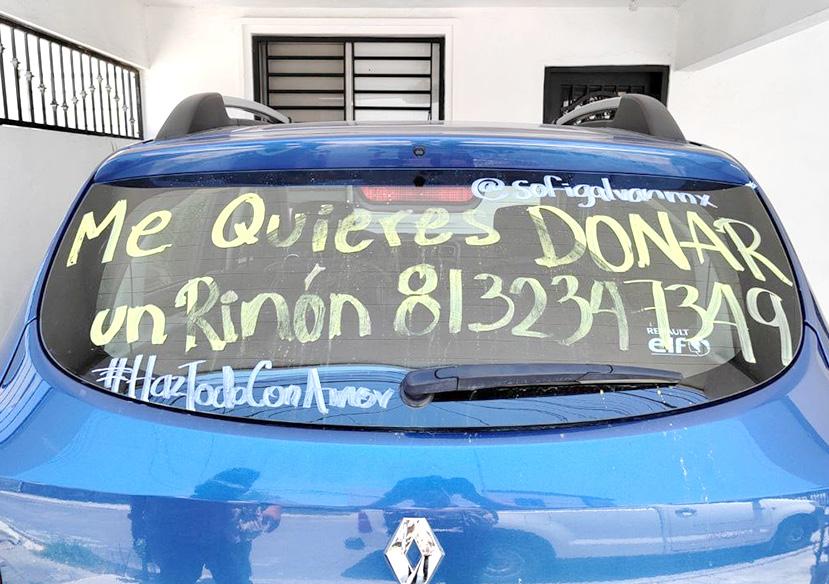 @sofigalvanmx
Me Quieres DONAR
un Rinón 8132347349
RENAULT
elf
#HazTodoConAmor